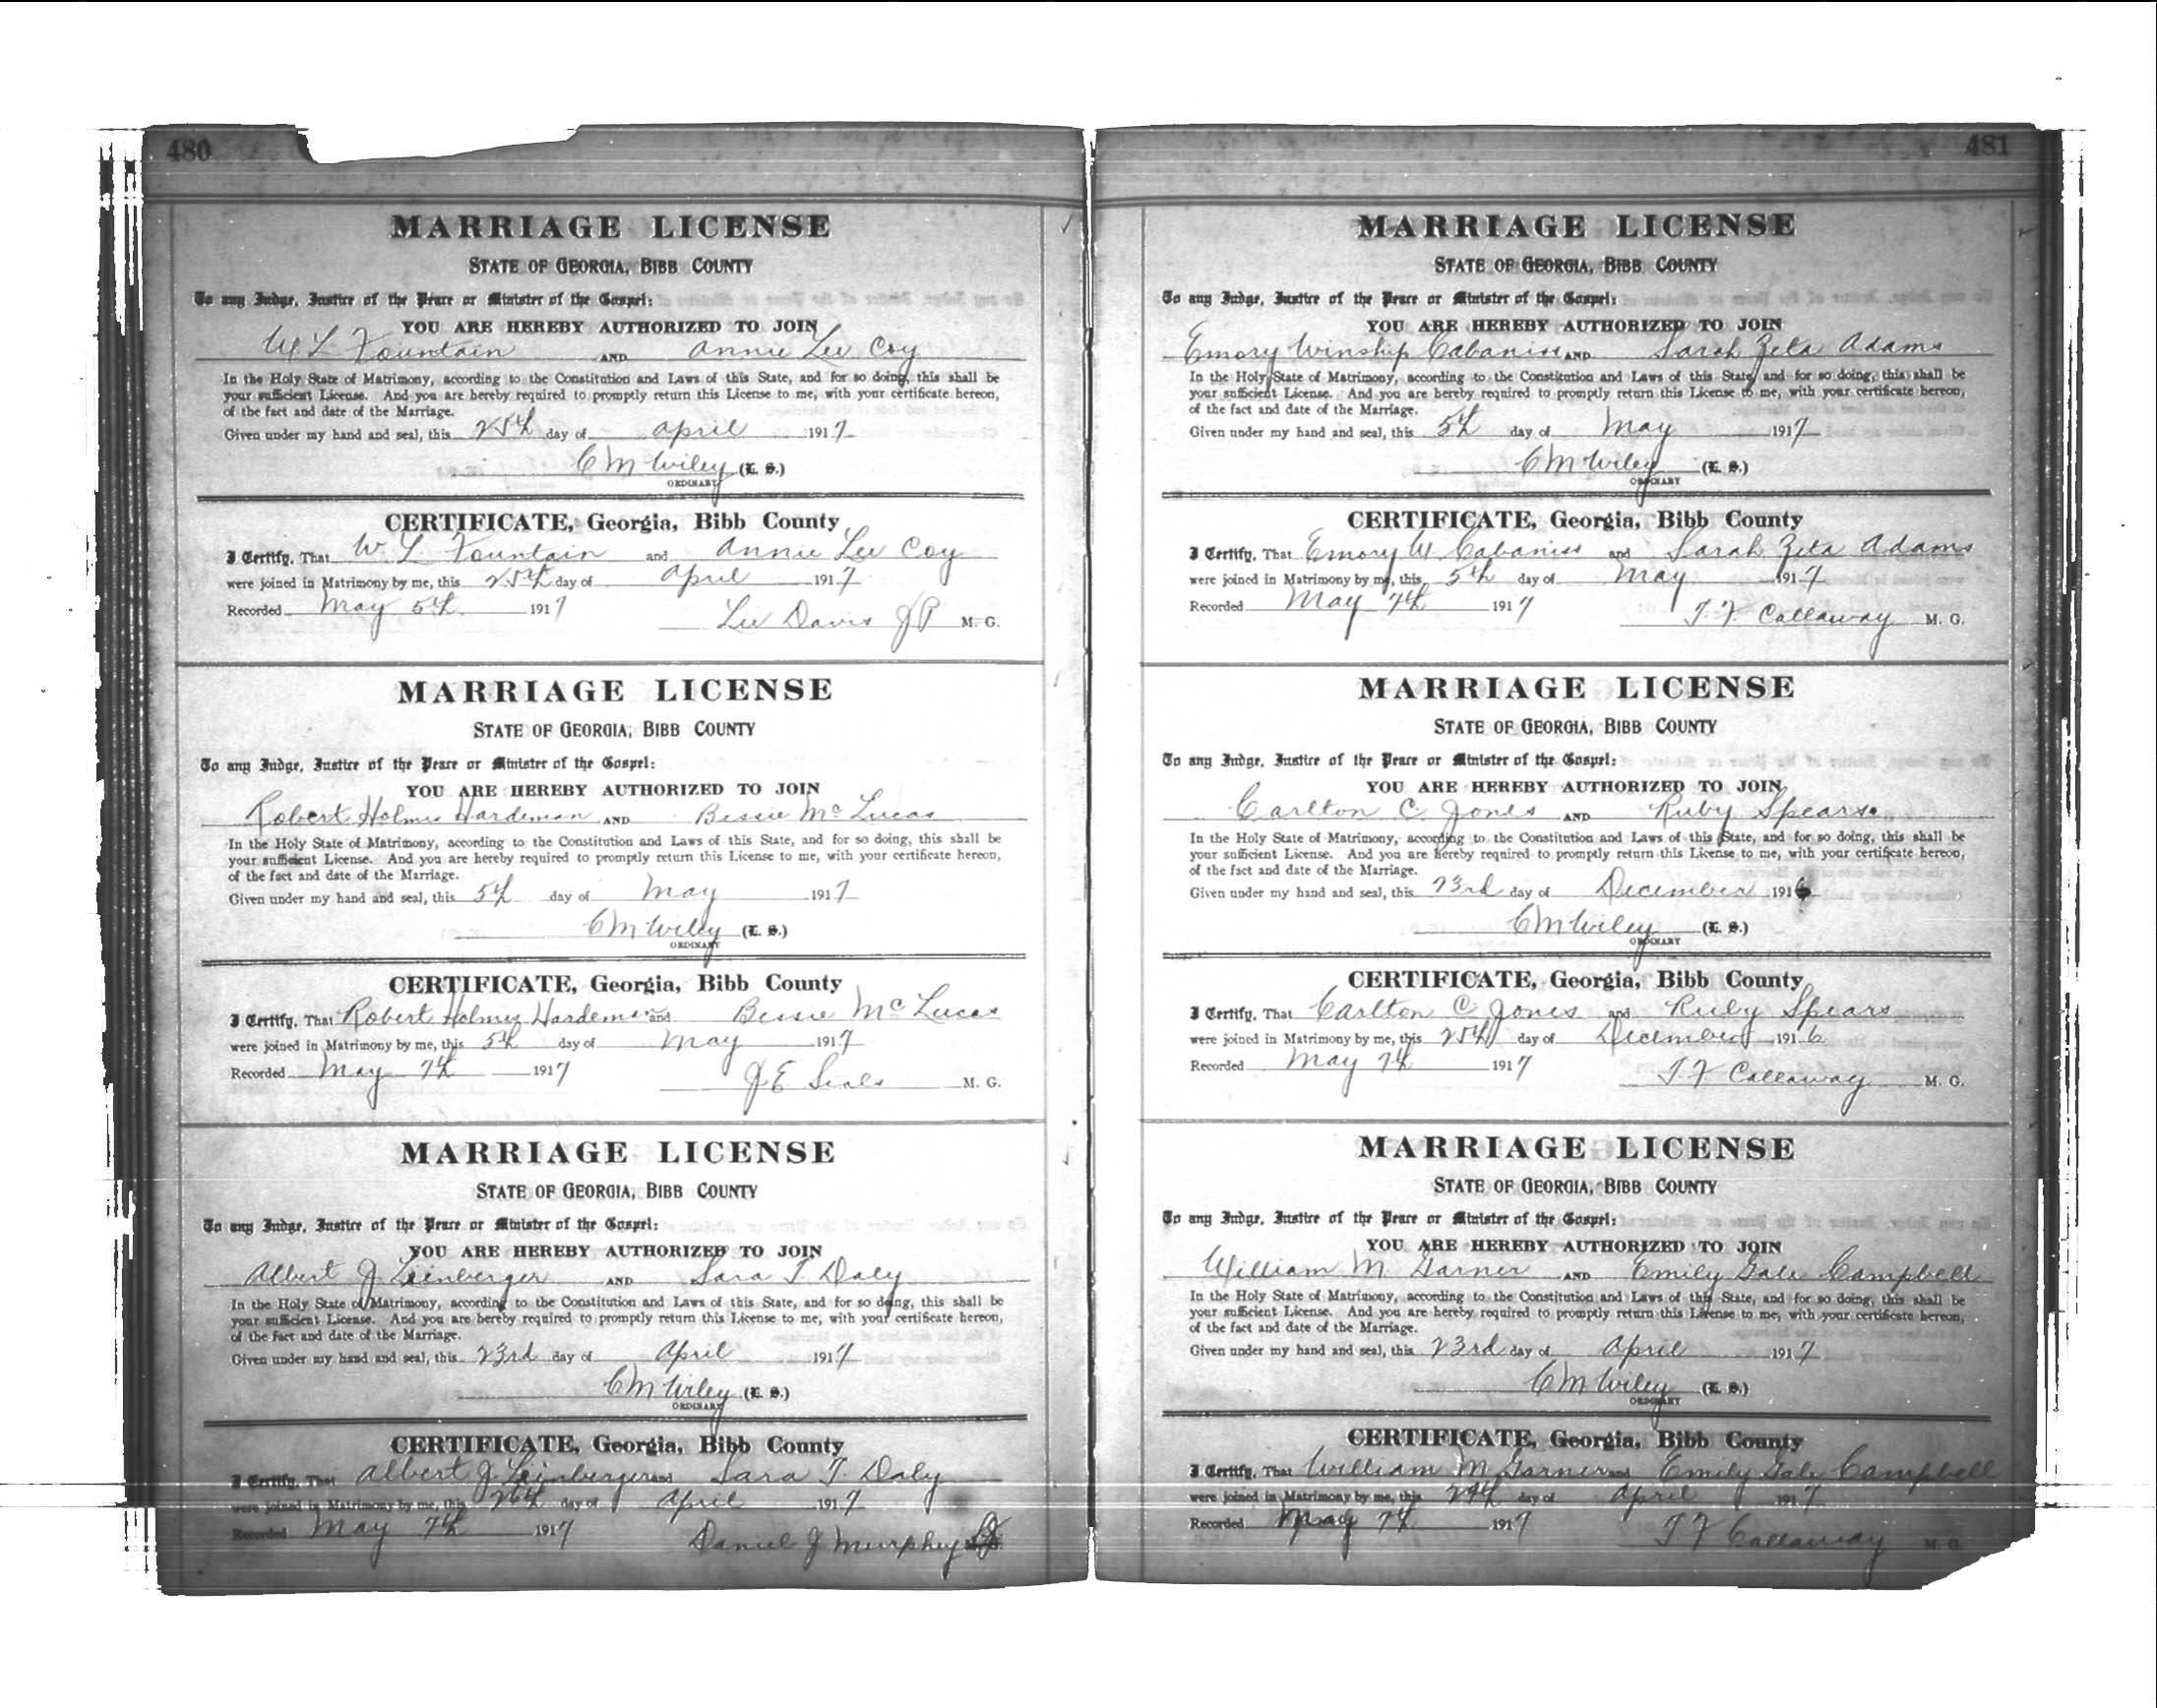 480
MARRIAGE LICENSE
STATE OF GEORGIA, BIBB COUNTY
To any Judge, Justice of the Peace or Minister of the Gospel:
YOU ARE HEREBY AUTHORIZED TO JOIN
W L Fountain AND Annie Lee Coy
In the Holy State of Matrimony, according to the Constitution and Laws of this State, and for so doing, this shall be
your sufficient License. And you are hereby required to promptly return this License to me, with your certificate hereon,
of the fact and date of the Marriage.
Given under my hand and seal, this 25th day of April 1917
C M Wiley (L. S.)
ORDINARY
CERTIFICATE, Georgia, Bibb County
I Certify, That W. L. Fountain and Annie Lee Coy
were joined in Matrimony by me, this 25th day of April 1917
Recorded May 5th 1917
Lee Davis JP M. G.
MARRIAGE LICENSE
STATE OF GEORGIA, BIBB COUNTY
To any Judge, Justice of the Peace or Minister of the Gospel:
YOU ARE HEREBY AUTHORIZED TO JOIN
Robert Holmes Hardeman AND Bessie McLucas
In the Holy State of Matrimony, according to the Constitution and Laws of this State, and for so doing, this shall be
your sufficient License. And you are hereby required to promptly return this License to me, with your certificate hereon,
of the fact and date of the Marriage.
Given under my hand and seal, this 5th day of May 1917
C M Wiley (L. S.)
ORDINARY
CERTIFICATE, Georgia, Bibb County
I Certify, That Robert Holmes Hardeman and Bessie McLucas
were joined in Matrimony by me, this 5th day of May 1917
Recorded May 7th 1917
J E Seals M. G.
MARRIAGE LICENSE
STATE OF GEORGIA, BIBB COUNTY
To any Judge, Justice of the Peace or Minister of the Gospel:
YOU ARE HEREBY AUTHORIZED TO JOIN
Albert J Leinberger AND Sara T. Daly
In the Holy State of Matrimony, according to the Constitution and Laws of this State, and for so doing, this shall be
your sufficient License. And you are hereby required to promptly return this License to me, with your certificate hereon,
of the fact and date of the Marriage.
Given under my hand and seal, this 23rd day of April 1917
C M Wiley (L. S.)
ORDINARY
CERTIFICATE, Georgia, Bibb County
I Certify, That Albert J. Leinberger and Sara T. Daly
were joined in Matrimony by me, this 26th day of April 1917
Recorded May 7th 1917
Daniel J Murphy
481
MARRIAGE LICENSE
STATE OF GEORGIA, BIBB COUNTY
To any Judge, Justice of the Peace or Minister of the Gospel:
YOU ARE HEREBY AUTHORIZED TO JOIN
Emory Winship Cabaniss AND Sarah Zeta Adams
In the Holy State of Matrimony, according to the Constitution and Laws of this State, and for so doing, this shall be
your sufficient License. And you are hereby required to promptly return this License to me, with your certificate hereon,
of the fact and date of the Marriage.
Given under my hand and seal, this 5th day of May 1917
C M Wiley (L. S.)
ORDINARY
CERTIFICATE, Georgia, Bibb County
I Certify, That Emory W. Cabaniss and Sarah Zeta Adams
were joined in Matrimony by me, this 5th day of May 1917
Recorded May 7th 1917
T. F. Callaway M. G.
MARRIAGE LICENSE
STATE OF GEORGIA, BIBB COUNTY
To any Judge, Justice of the Peace or Minister of the Gospel:
YOU ARE HEREBY AUTHORIZED TO JOIN
Carlton C. Jones AND Ruby Spears
In the Holy State of Matrimony, according to the Constitution and Laws of this State, and for so doing, this shall be
your sufficient License. And you are hereby required to promptly return this License to me, with your certificate hereon,
of the fact and date of the Marriage.
Given under my hand and seal, this 23rd day of December 1916
C M Wiley (L. S.)
ORDINARY
CERTIFICATE, Georgia, Bibb County
I Certify, That Carlton C Jones and Ruby Spears
were joined in Matrimony by me, this 25th day of December 1916
Recorded May 7th 1917
T F Callaway M. G.
MARRIAGE LICENSE
STATE OF GEORGIA, BIBB COUNTY
To any Judge, Justice of the Peace or Minister of the Gospel:
YOU ARE HEREBY AUTHORIZED TO JOIN
William M. Garner AND Emily Gale Campbell
In the Holy State of Matrimony, according to the Constitution and Laws of this State, and for so doing, this shall be
your sufficient License. And you are hereby required to promptly return this License to me, with your certificate hereon,
of the fact and date of the Marriage.
Given under my hand and seal, this 23rd day of April 1917
C M Wiley (L. S.)
ORDINARY
CERTIFICATE, Georgia, Bibb County
I Certify, That William M Garner and Emily Gale Campbell
were joined in Matrimony by me, this day of April 1917
Recorded May 7th 1917
T F Callaway M. G.